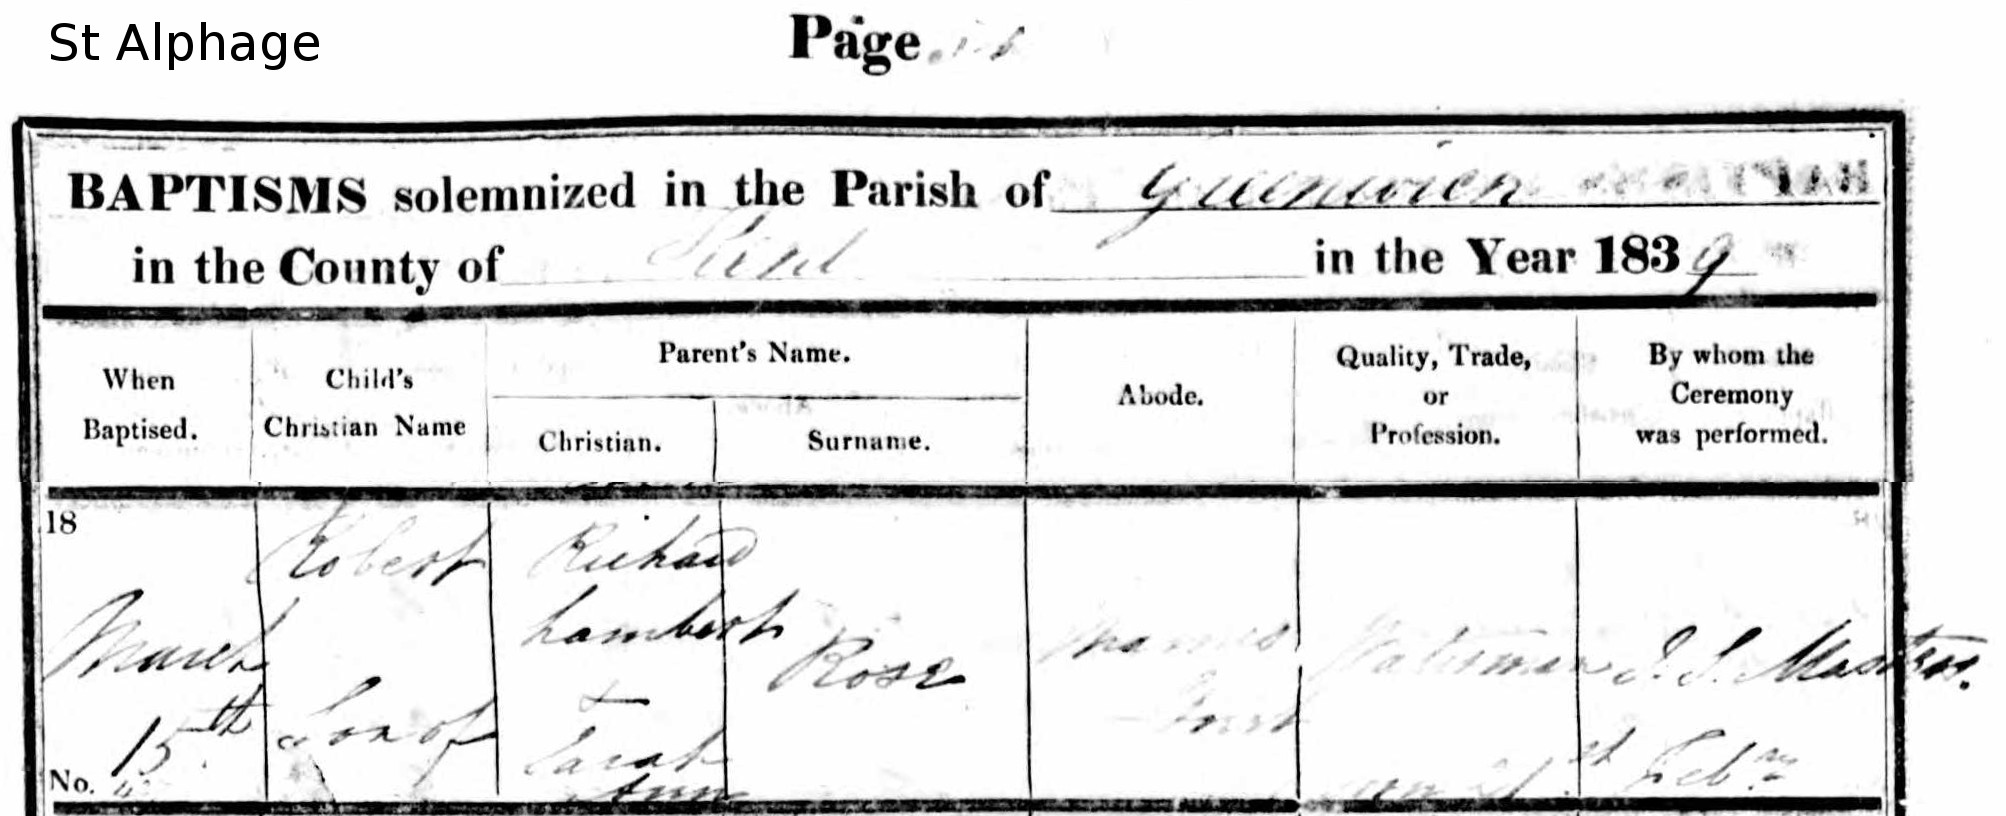 St Alphage
Page
BAPTISMS solemnized in the Parish of Greenwich
in the County of Kent in the Year 1839
When Baptised.
Child's Christian Name
Parent's Name.
Christian.
Surname.
Abode.
Quality, Trade, or Profession.
By whom the Ceremony was performed.
18
March
15th
No.
Robert
Son of
Richard
Lambert
+
Sarah
Ann
Rose
Waterman
J. S. Masters.
21st Feby